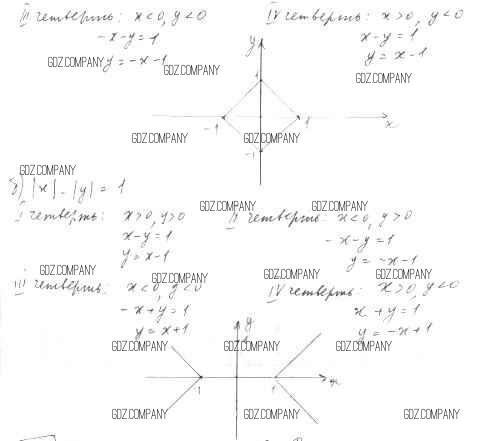 III четверть: x<0, y<0 IV четверть: x>0, y<0
-x-y=1 x-y=1
y=-x-1 y=x-1
GDZ.COMPANY GDZ.COMPANY GDZ.COMPANY
y
1
-1 1 x
-1
GDZ.COMPANY GDZ.COMPANY
GDZ.COMPANY
б) |x|-|y|=1
GDZ.COMPANY GDZ.COMPANY
I четверть: x>0, y>0 II четверть: x<0, y>0
x-y=1 -x-y=1
y=x-1 y=-x-1
GDZ.COMPANY GDZ.COMPANY GDZ.COMPANY GDZ.COMPANY
III четверть: x<0, y<0 IV четверть: x>0, y<0
-x+y=1 x+y=1
y=x+1 y=-x+1
y
GDZ.COMPANY GDZ.COMPANY GDZ.COMPANY
-1 1 x
GDZ.COMPANY GDZ.COMPANY GDZ.COMPANY